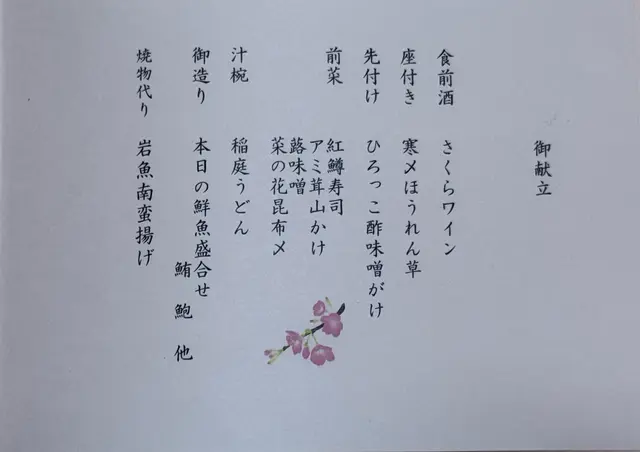 御献立
食前酒 さくらワイン
座付き 寒〆ほうれん草
先付け ひろっこ酢味噌がけ
前菜 紅鱒寿司
アミ茸山かけ
蕗味噌
菜の花昆布〆
汁椀 稲庭うどん
御造り 本日の鮮魚盛合せ
鮪 鮑 他
焼物代り 岩魚南蛮揚げ